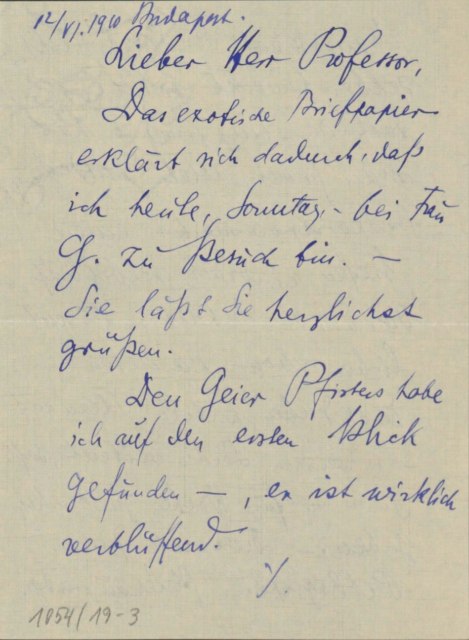 12/VI. 1910 Budapest.
Lieber Herr Professor,
Das exotische Briefpapier
erklärt sich dadurch, daß
ich heute, Sonntag, – bei Frau
G. zu Besuch bin. —
Sie läßt Sie herzlichst
grüßen.
Den Geier Pfisters habe
ich auf den ersten Blick
gefunden —, er ist wirklich
verblüffend.
./.
1054/19-3